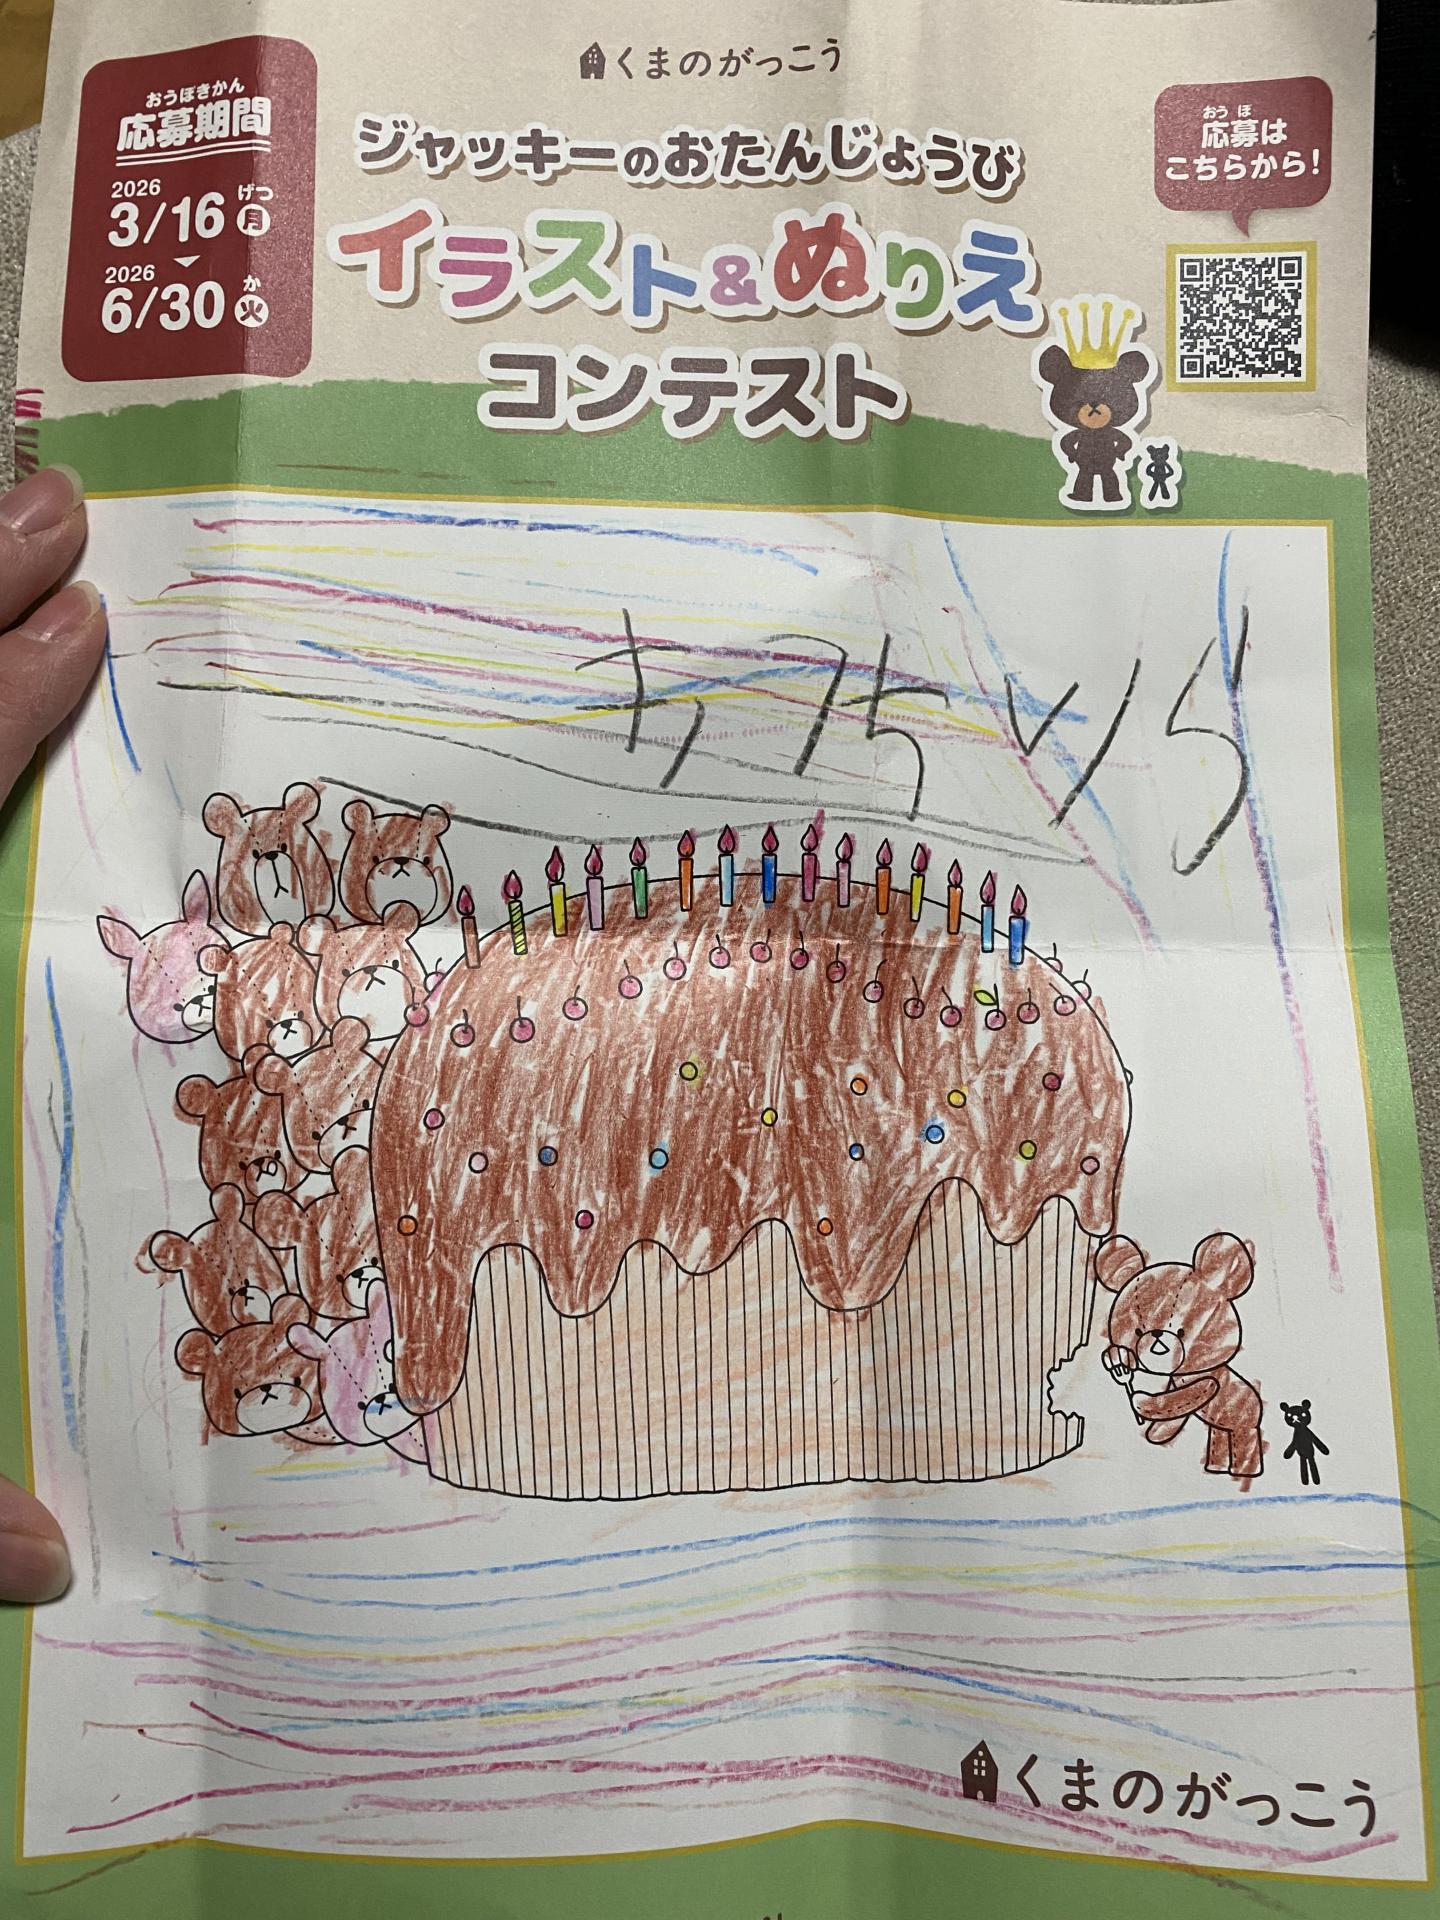 くまのがっこう
おうぼきかん
応募期間
2026
3/16 げつ 月
2026
6/30 か 火
ジャッキーのおたんじょうび
イラスト&ぬりえ
コンテスト
おうぼ
応募は
こちらから!
くまのがっこう